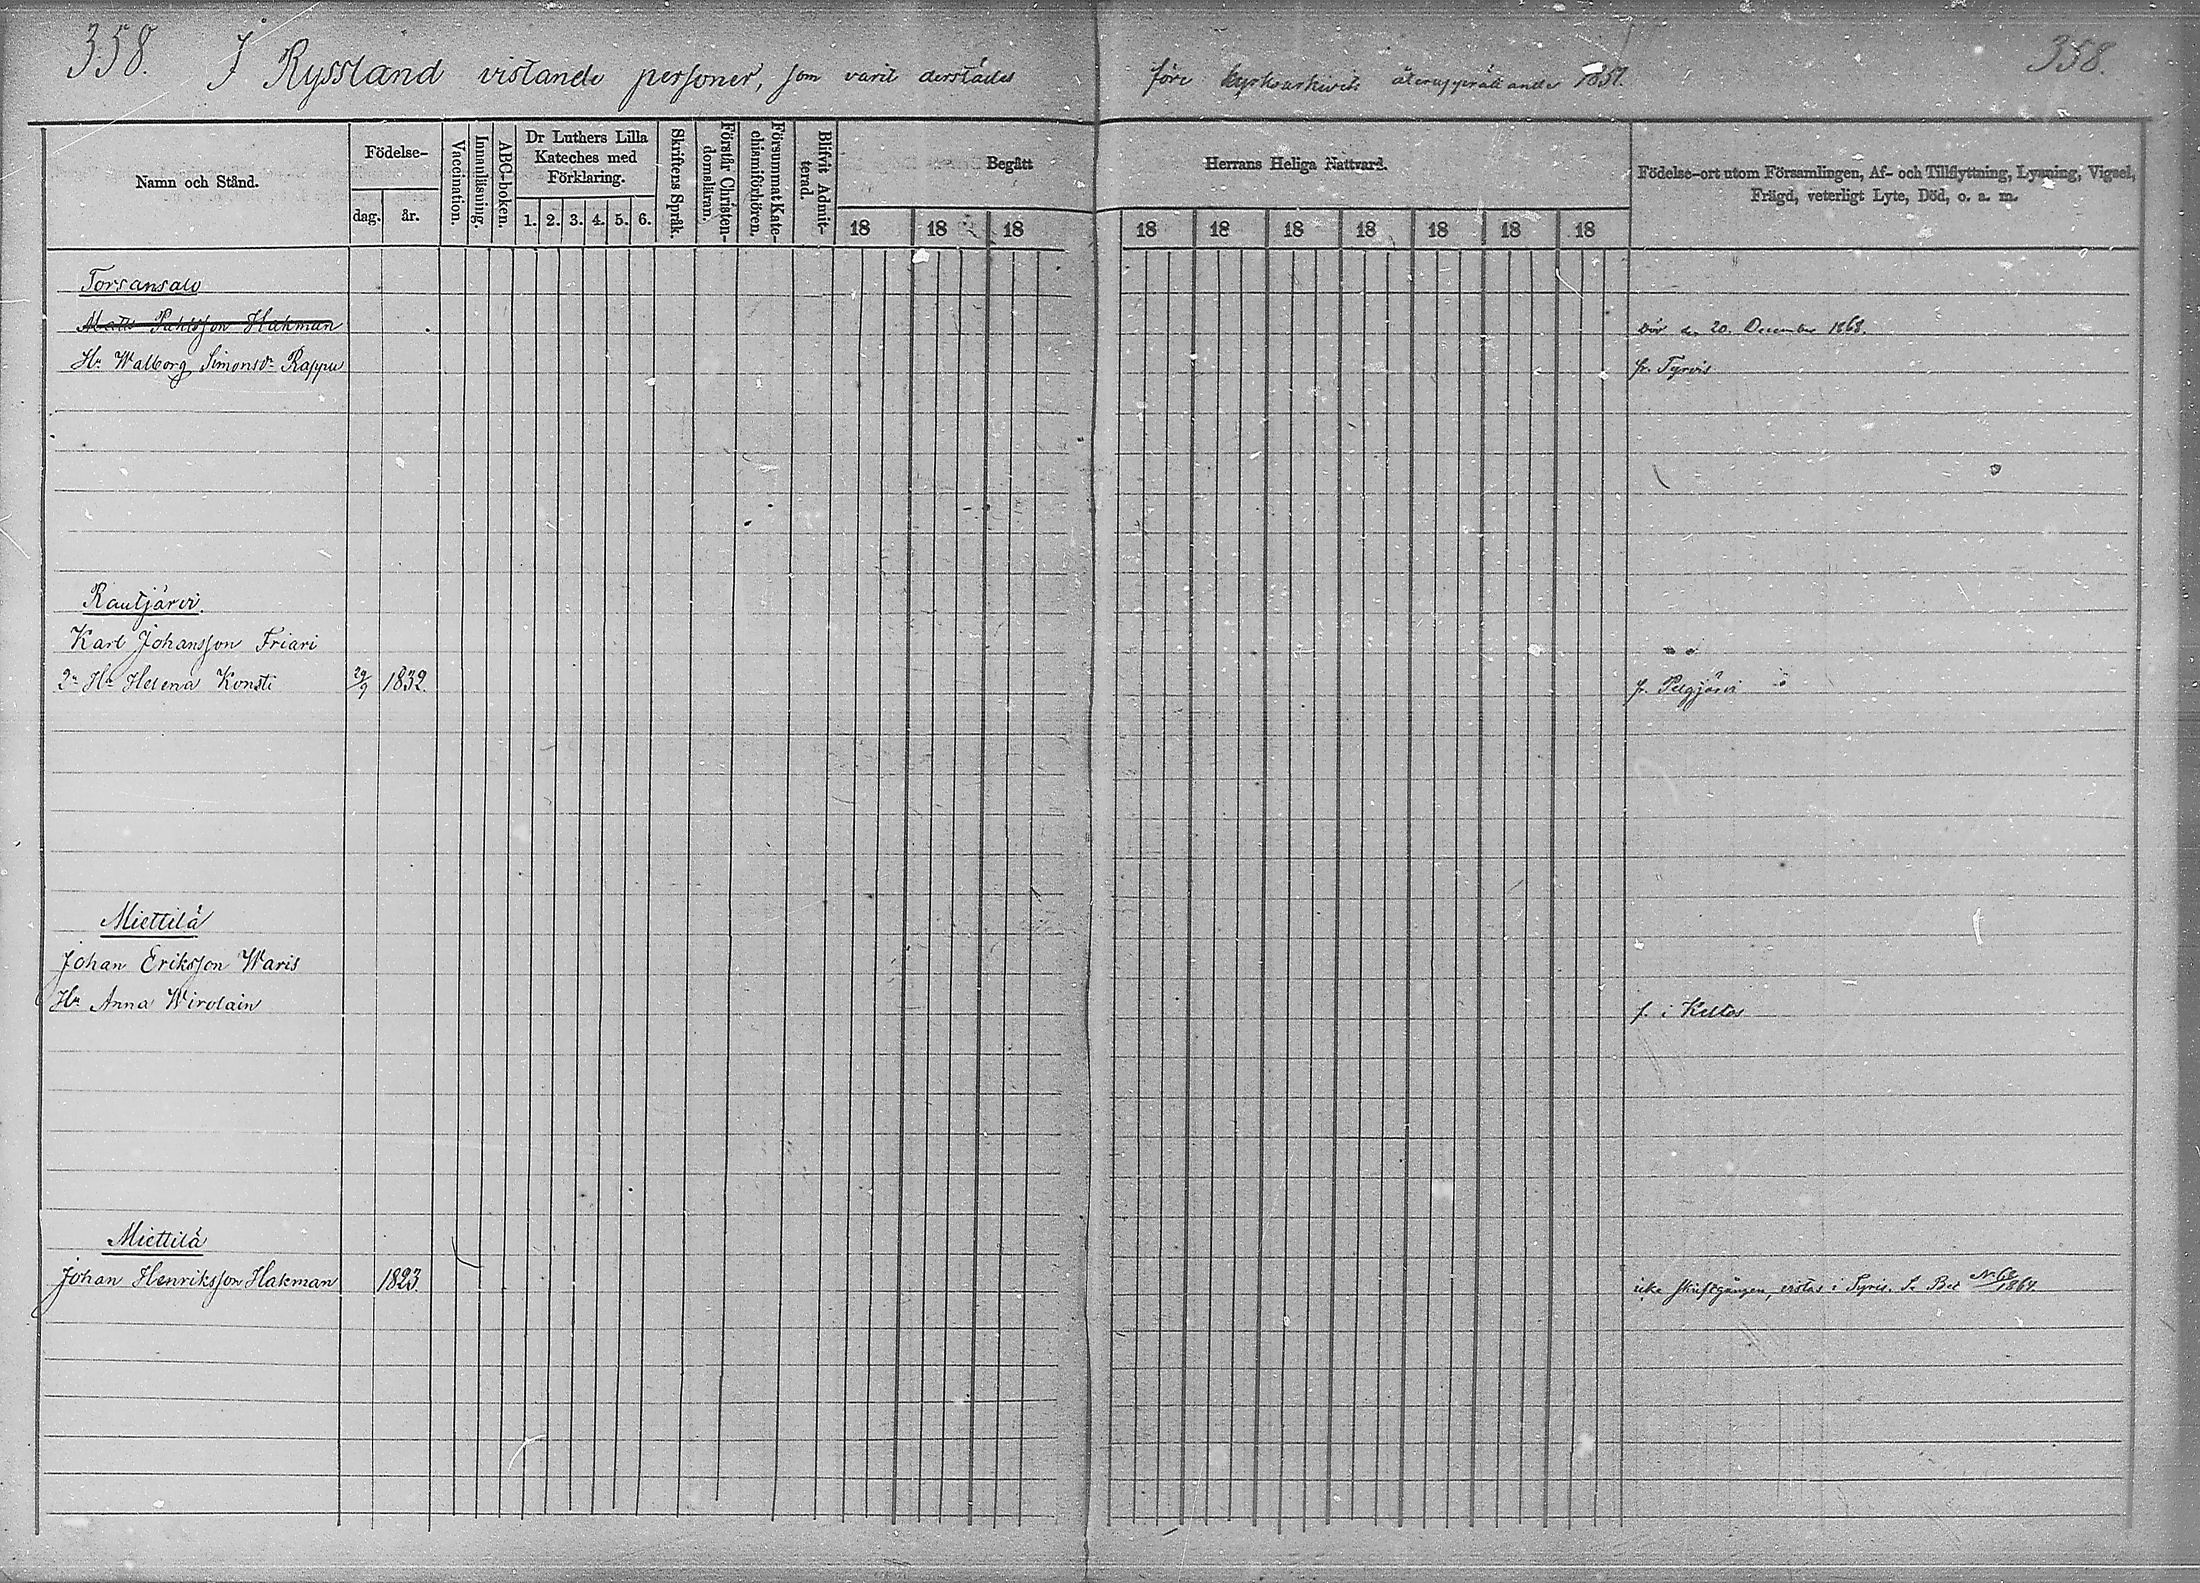 358. I Ryssland vistande personer, som varit derstädes före kyrkoarkivets återupprättande 1857. 358.
Namn och Stånd.
Födelse-
dag. år.
Vaccination.
Innanläsning.
ABC-boken.
Dr Luthers Lilla
Kateches med
Förklaring.
1. 2. 3. 4. 5. 6.
Skriftens Språk.
Förstår Christen-
domsläran.
Försummat Kate-
chismiförhören.
Blifvit Admit-
terad.
Begått Herrans Heliga Nattvard.
18 18 18 18 18 18 18 18 18 18
Födelse-ort utom Församlingen, Af- och Tillflyttning, Lysning, Vigsel,
Frägd, veterligt Lyte, Död, o. s. m.
Torsansalo
Matts Pahlsson Hakman Död den 20. December 1868.
Hu Walborg Simonsdr Rappu fr. Tyrvis
Rautjärvi.
Karl Johansson Friari
2n Hu Helena Konsti 29/9 1832. fr. Pelgjärvi
Miettilä
Johan Eriksson Waris
Hu Anna Wirolain f. i Keltos
Miettilä
Johan Henriksson Hakman 1823. icke skriftgången, vistas i Tyris. S. Bet No 68/1864.